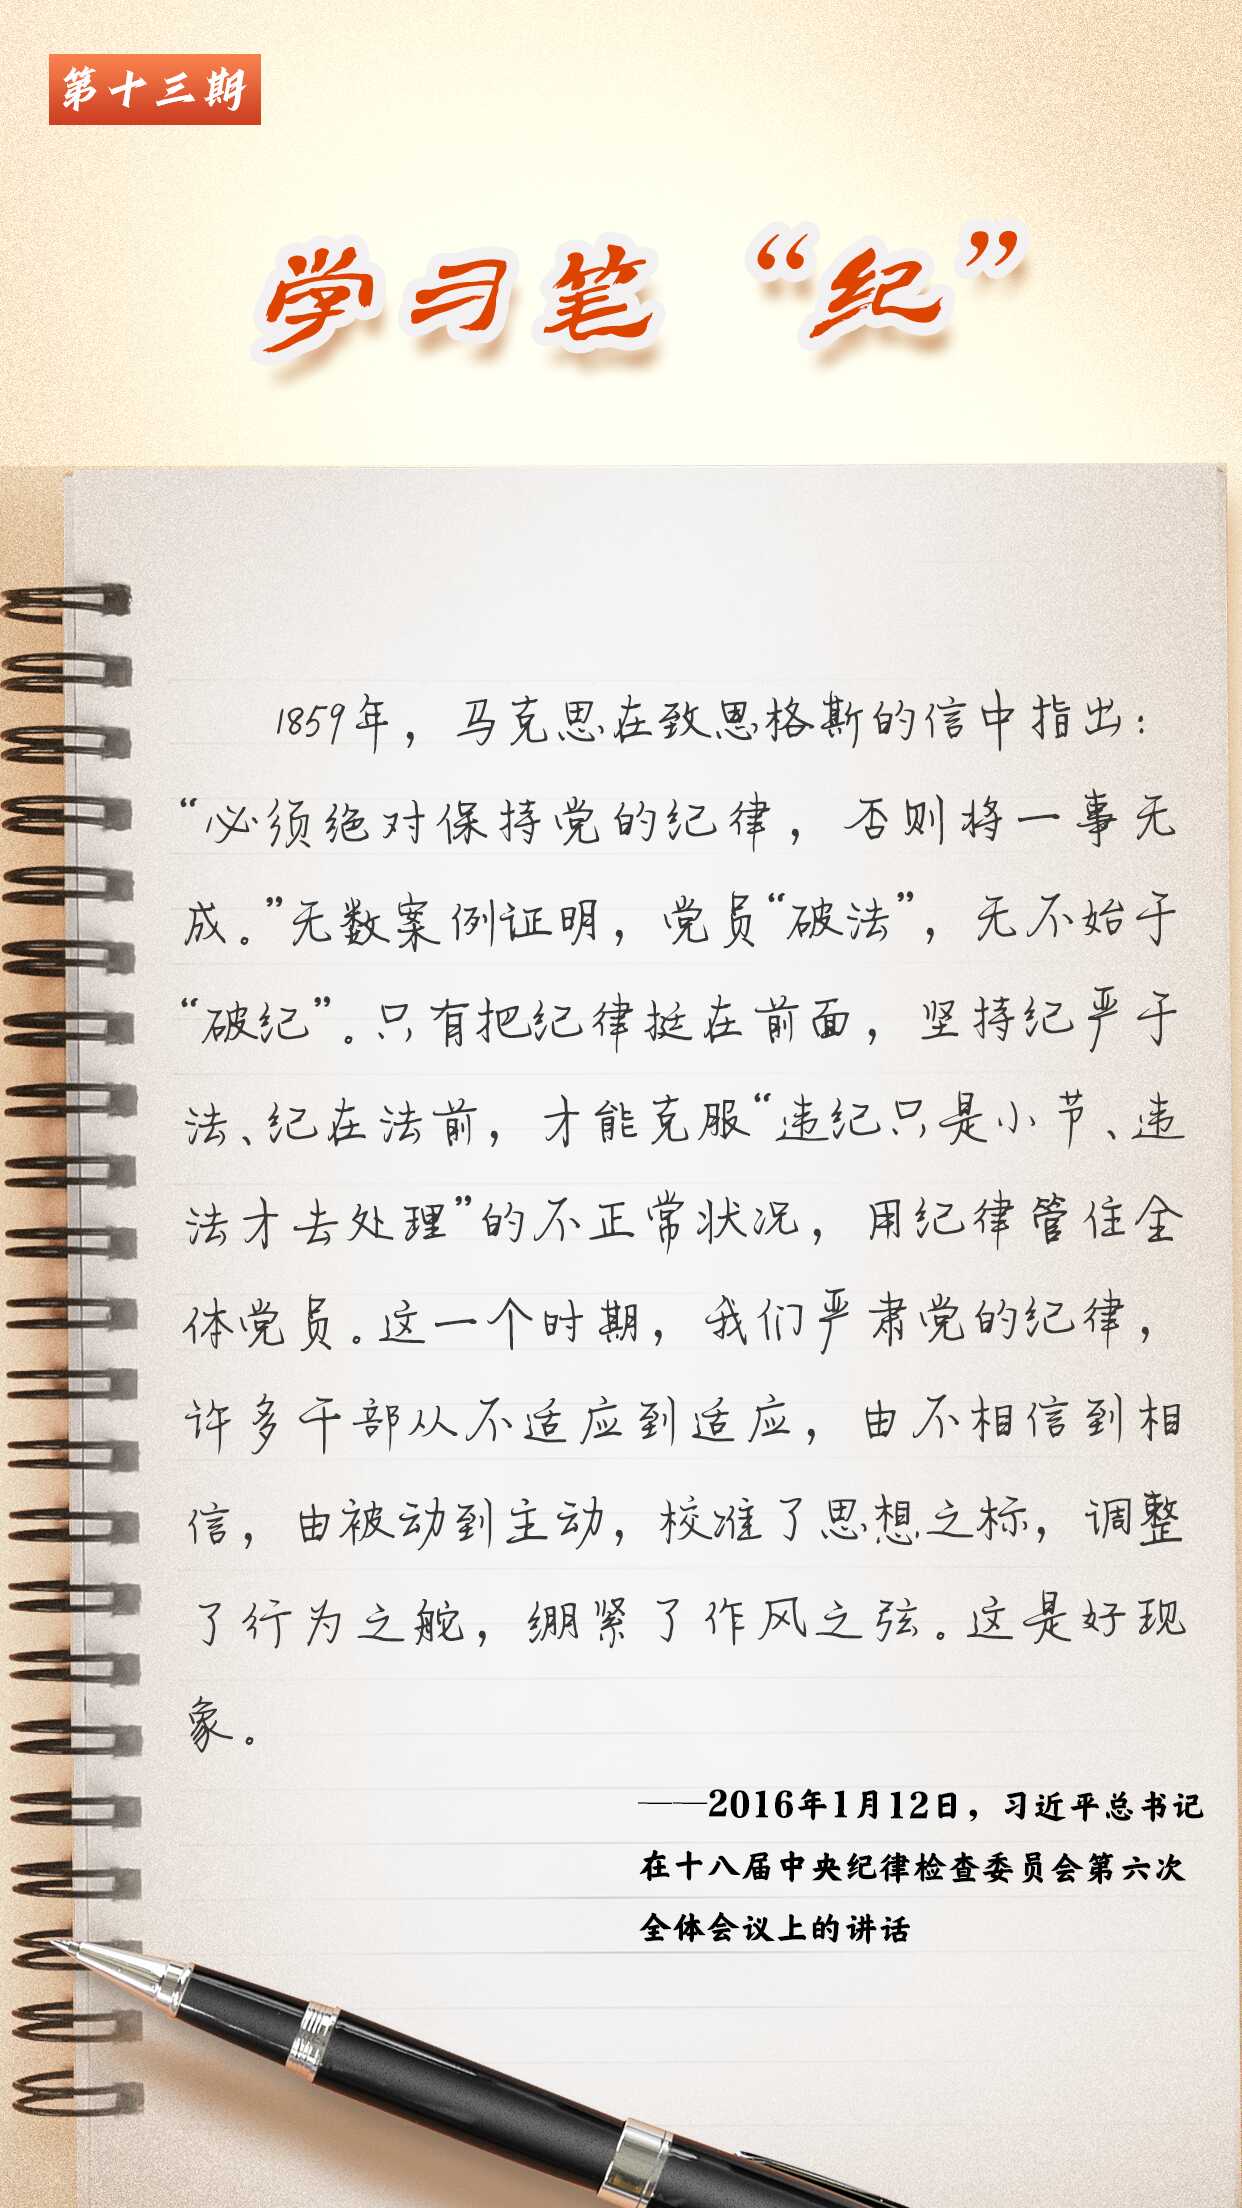 第十三期
学习笔“纪”
1859年，马克思在致恩格斯的信中指出：
“必须绝对保持党的纪律，否则将一事无
成。”无数案例证明，党员“破法”，无不始于
“破纪”。只有把纪律挺在前面，坚持纪严于
法、纪在法前，才能克服“违纪只是小节、违
法才去处理”的不正常状况，用纪律管住全
体党员。这一个时期，我们严肃党的纪律，
许多干部从不适应到适应，由不相信到相
信，由被动到主动，校准了思想之标，调整
了行为之舵，绷紧了作风之弦。这是好现
象。
——2016年1月12日，习近平总书记
在十八届中央纪律检查委员会第六次
全体会议上的讲话